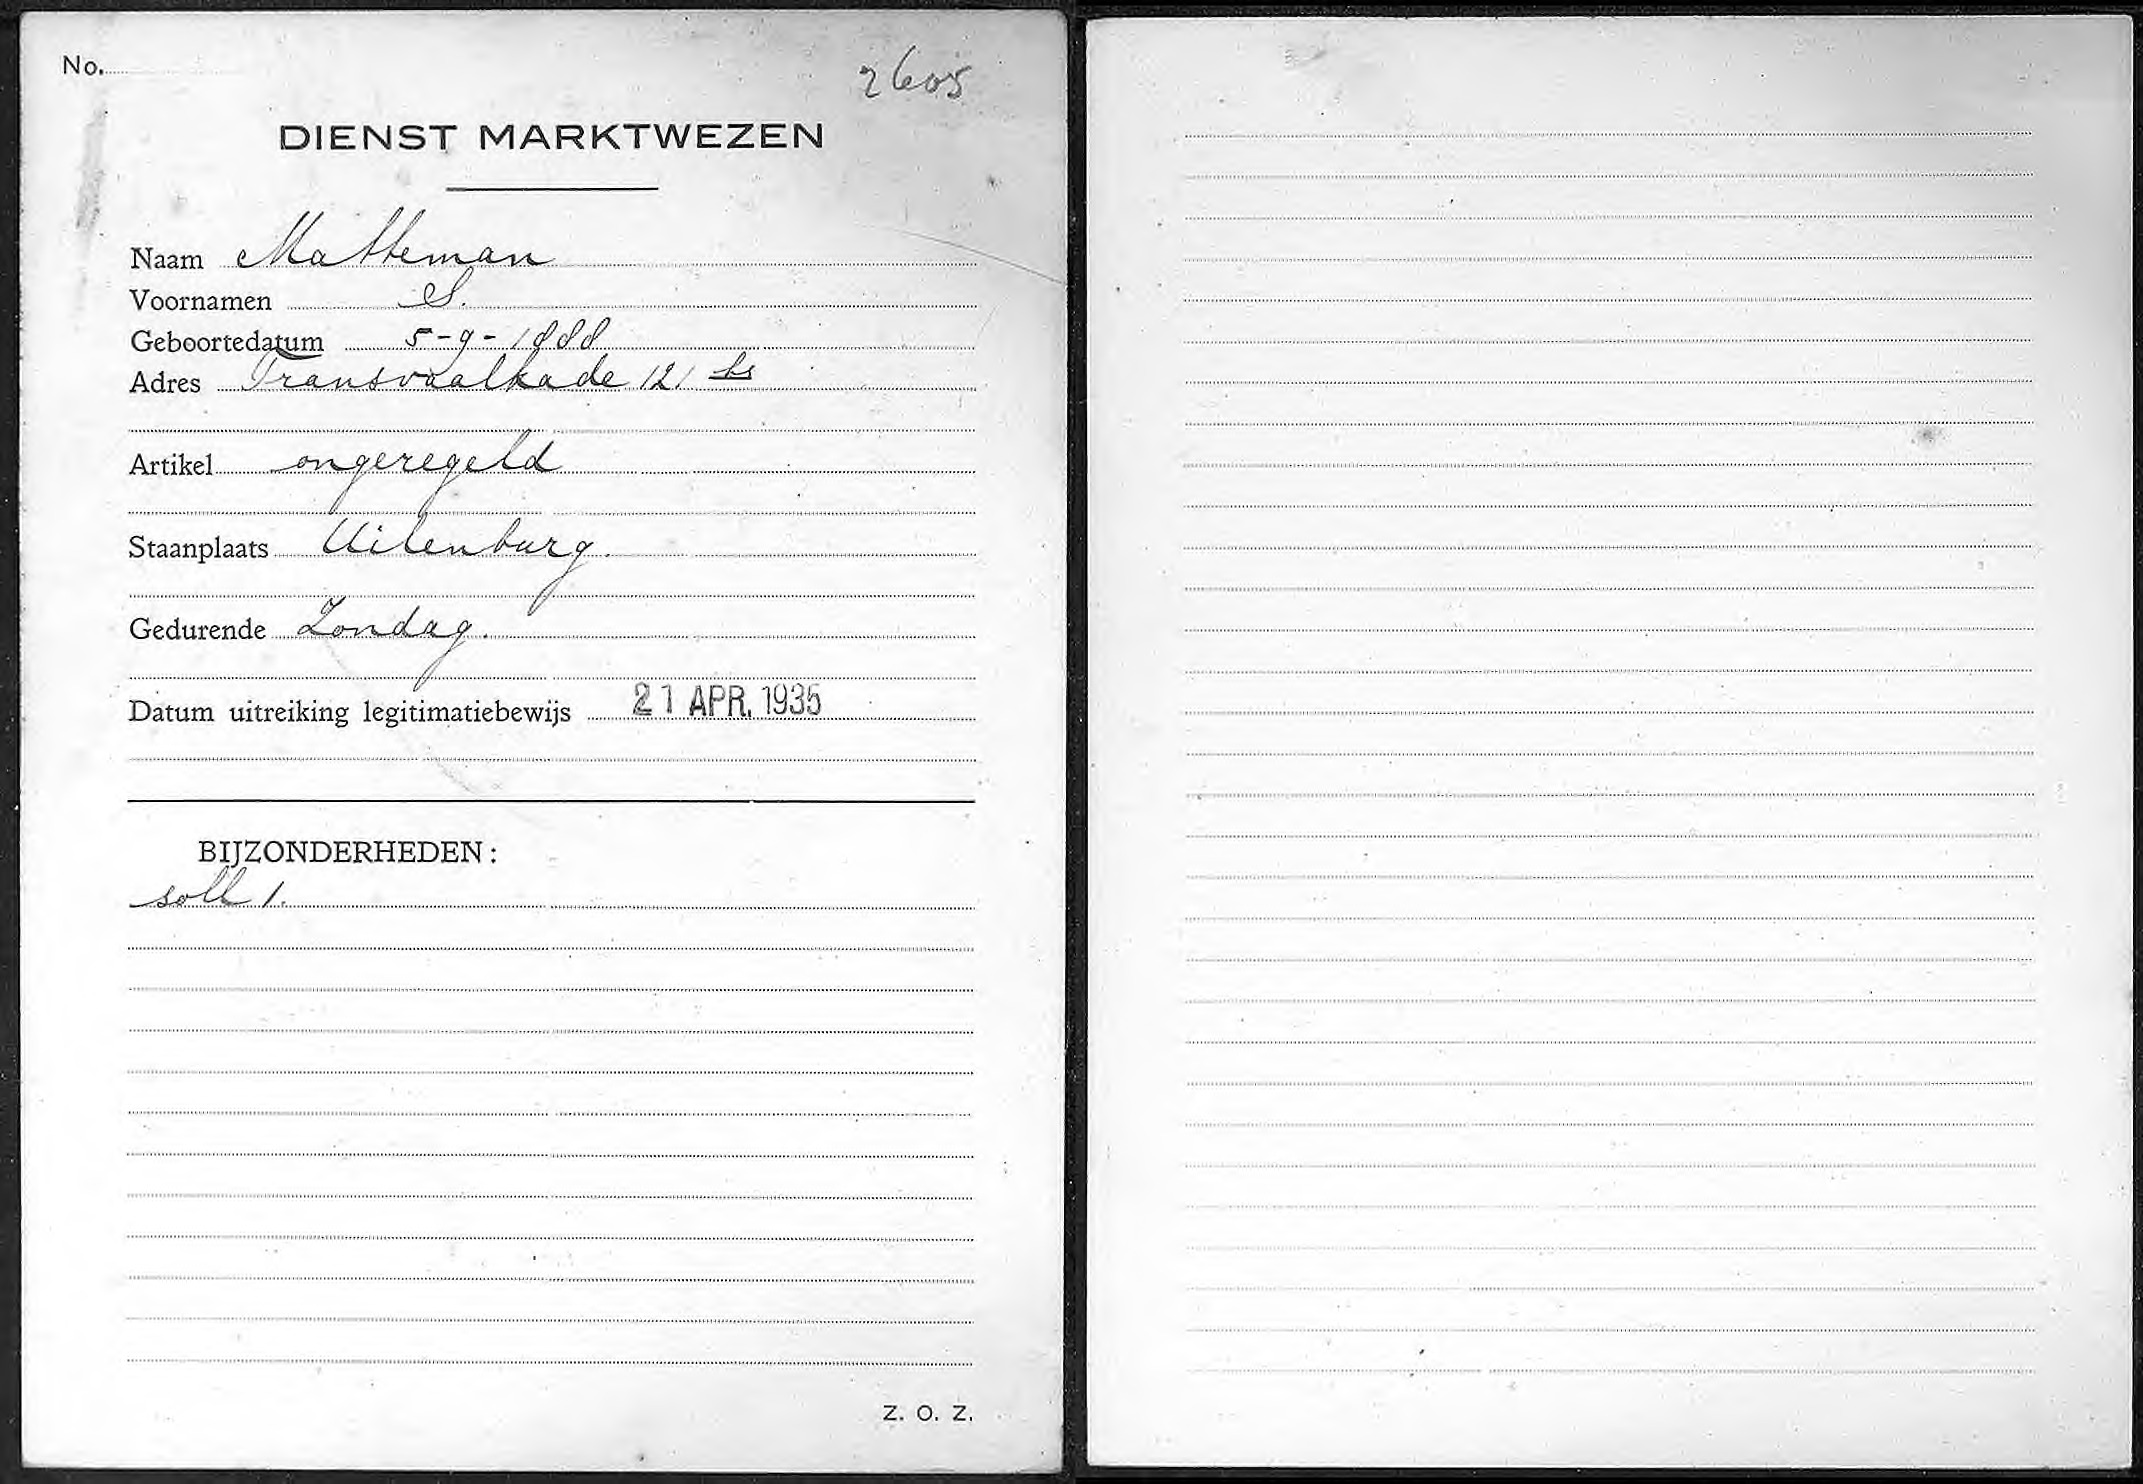 No.
2605
DIENST MARKTWEZEN
Naam Matteman
Voornamen S.
Geboortedatum 5-9-1888
Adres Transvaalkade 121 hs
Artikel ongeregeld
Staanplaats Uilenburg.
Gedurende Zondag.
Datum uitreiking legitimatiebewijs 21 APR. 1935
BIJZONDERHEDEN:
soll 1.
Z. O. Z.